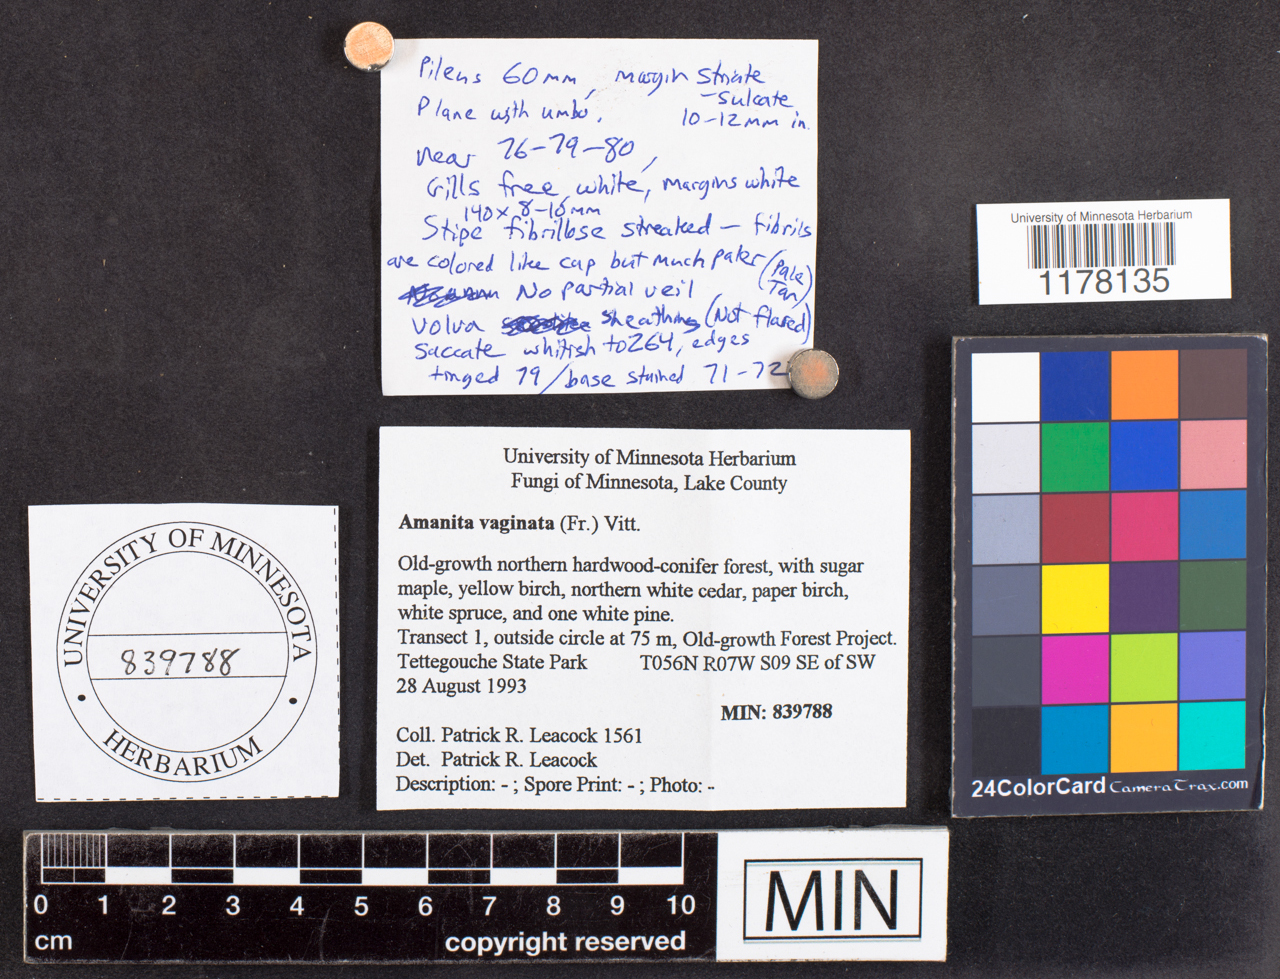 Pileus 60mm, margin striate
-sulcate
Plane with umbo, 10-12mm in.
near 76-79-80,
Gills free, white, margins white
140 x 8-10mm
Stipe fibrillose streaked - fibrils
are colored like cap but much paler (Pale
Tan)
No partial veil
volva sheathing (Not flared)
Saccate whitish to 264, edges
tinged 79/base stained 71-72
University of Minnesota Herbarium
1178135
University of Minnesota Herbarium
Fungi of Minnesota, Lake County
Amanita vaginata (Fr.) Vitt.
Old-growth northern hardwood-conifer forest, with sugar
maple, yellow birch, northern white cedar, paper birch,
white spruce, and one white pine.
Transect 1, outside circle at 75 m, Old-growth Forest Project.
Tettegouche State Park T056N R07W S09 SE of SW
28 August 1993
MIN: 839788
Coll. Patrick R. Leacock 1561
Det. Patrick R. Leacock
Description: - ; Spore Print: - ; Photo: -
UNIVERSITY OF MINNESOTA
839788
• HERBARIUM •
24ColorCard CameraTrax.com
0 1 2 3 4 5 6 7 8 9 10
cm copyright reserved
MIN